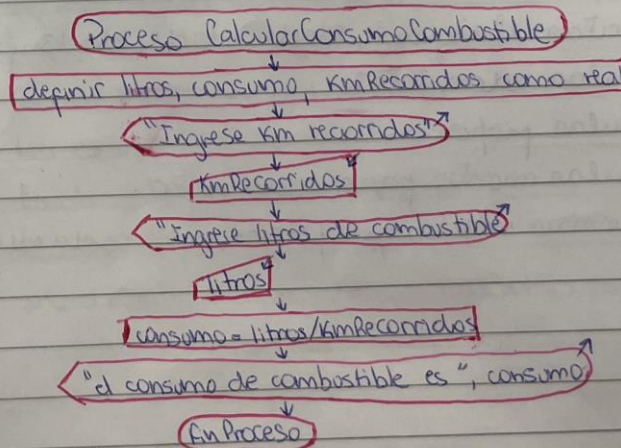 Proceso CalcularConsumoCombustible
definir litros, consumo, KmRecorridos como real
"Ingrese Km recorridos"
KmRecorridos
"Ingrese litros de combustible
litros
consumo = litros/KmRecorridos
"el consumo de combustible es", consumo
FinProceso